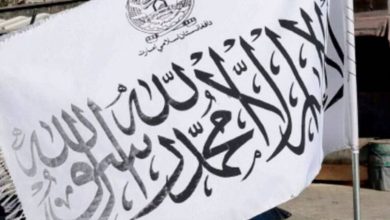 دافغانستان اسلامي امارت
لا إله إلا الله محمد رسول الله